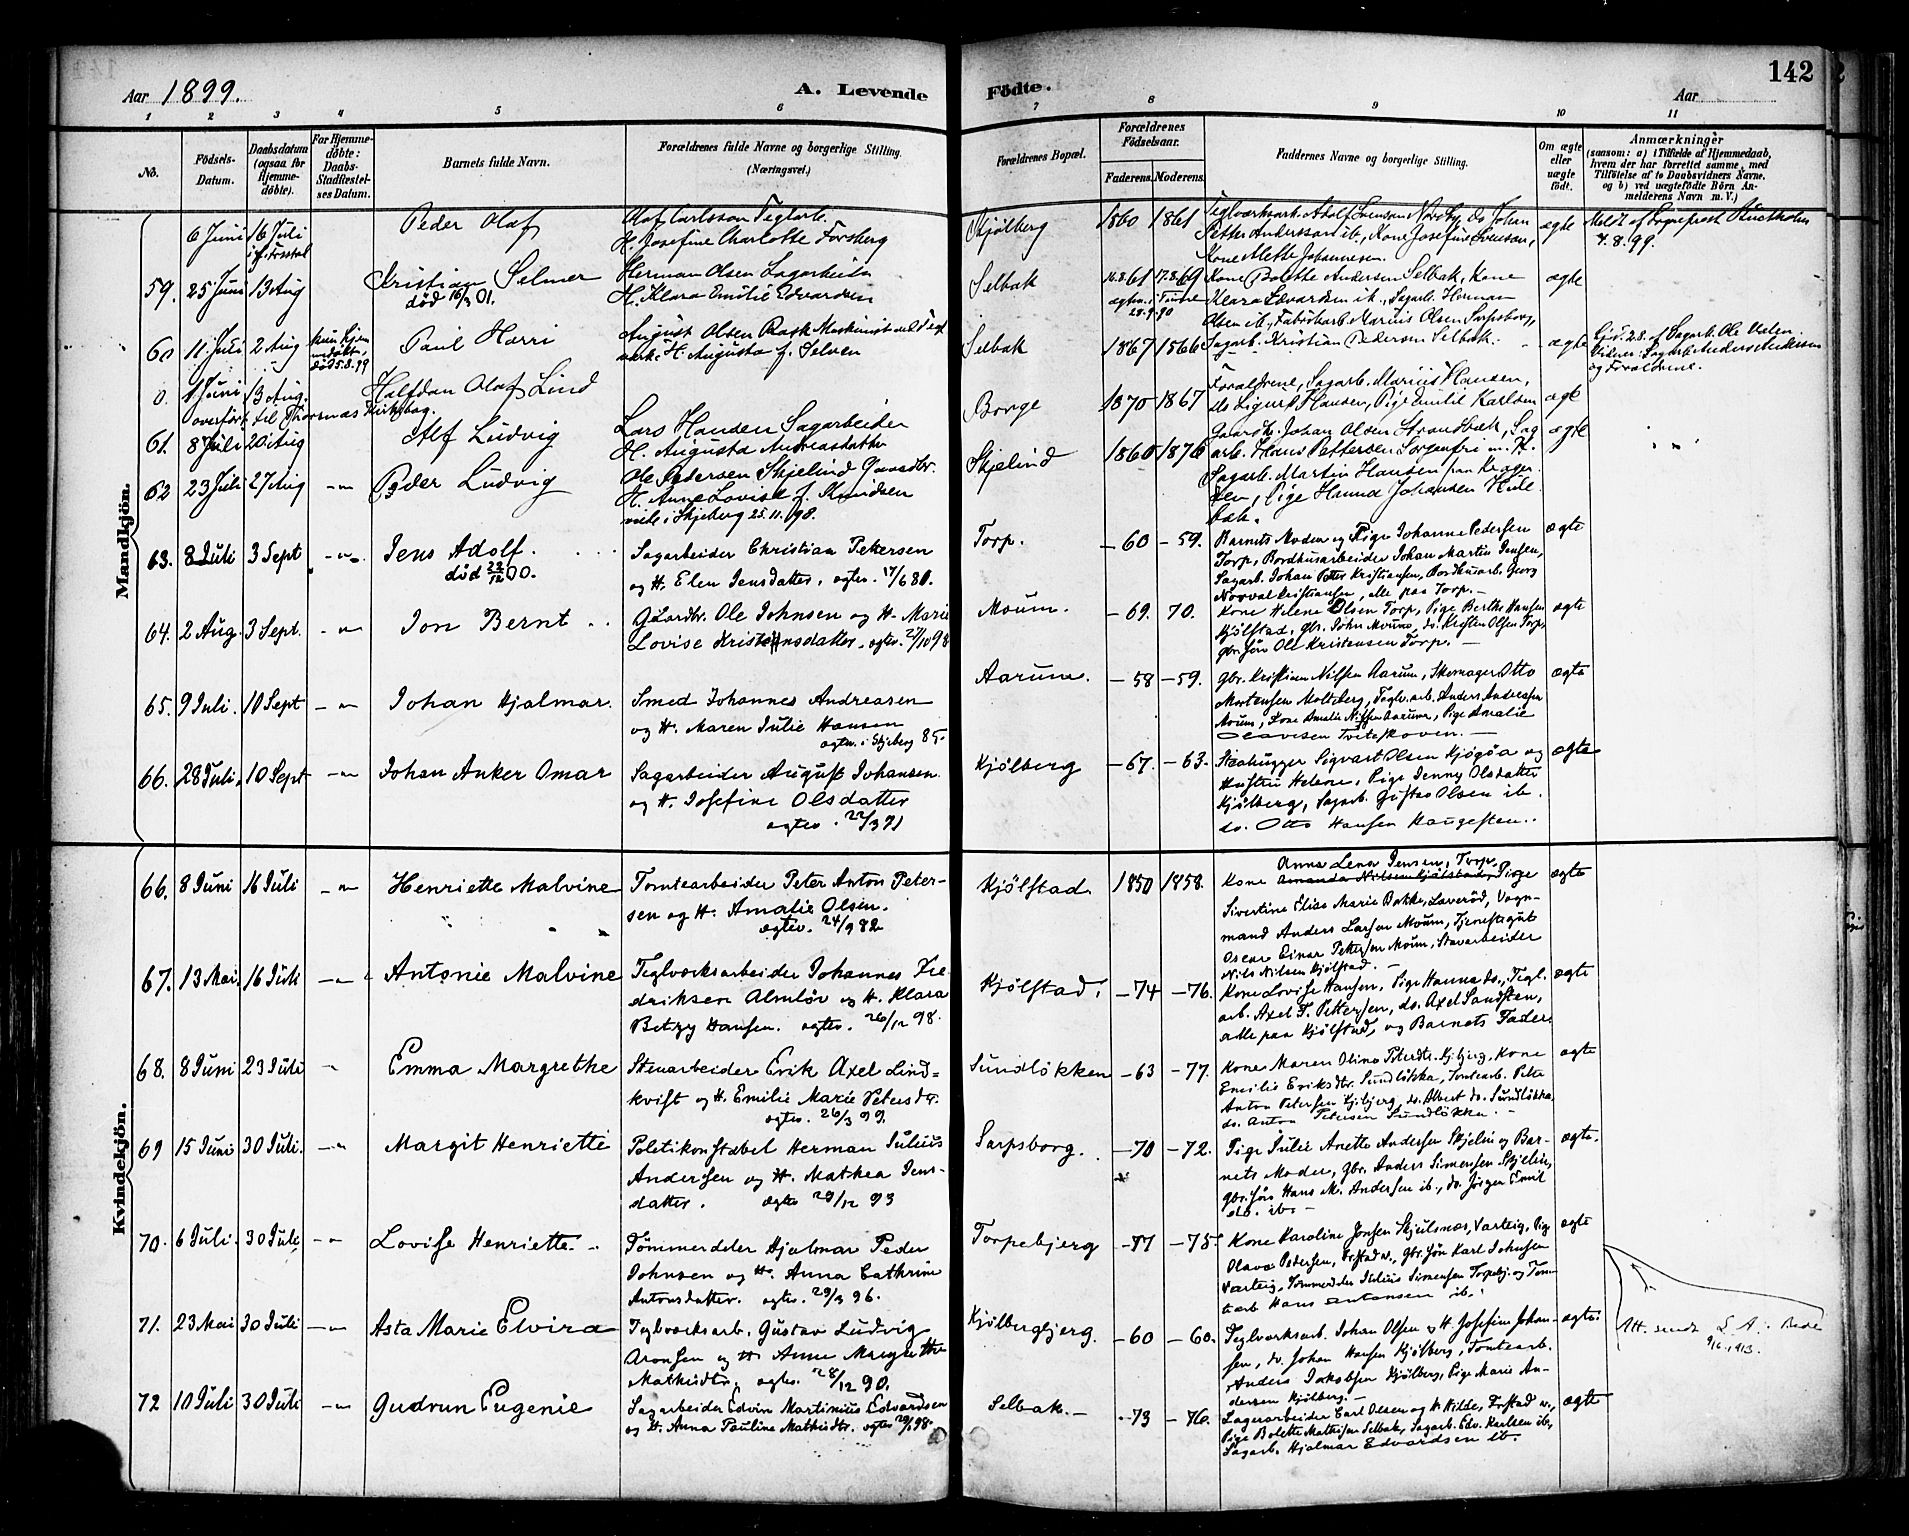 Aar 1899.
A. Levende Födte.
Aar
142
1 2 3 4 5 6 7 8 9 10 11
No.
Födsels-Datum.
Daabsdatum (ogsaa for Hjemme-döbte).
For Hjemme-döbte: Daabs-Stadfæstel-ses Datum.
Barnets fulde Navn.
Forældrenes fulde Navne og borgerlige Stilling. (Næringsvei.)
Forældrenes Bopæl.
Forældrenes Födselsaar.
Faderens. Moderens.
Faddernes Navne og borgerlige Stilling.
Om ægte eller uægte födt.
Anmærkninger
(saasom: a) i Tilfælde af Hjemmedaab,
hvem der har forrettet samme, med
Tilföielse af to Daabsvidners Navne,
og b) ved uægtefödte Börn An-
melderens Navn m. V.)
Mandkjön.
6 Juni 16 Juli Peder Olaf
Olaf Carlsson Teglarb.
H. Josefine Charlotte Forsberg
Kjølberg 1860 1861
Teglværksarb. Adolf Svenson Nordby, do Johan
Petter Andersson ib., Kone Josefine Svenson,
Kone Alette Johannesen.
ægte
7.8.99.
59. 25 Juni 13 Aug Kristian Selmer
død 16/3 01.
Herman Olsen Sagarbeider
H. Klara Emilie Edvardsen
Selbak 61 17.8.69
Kone Bolette Andersen Selbak, Kone
Klara Edvardsen ib., Sagarb. Herman
Olsen ib., Fabrikarb. Marius Olsen Sarpsborg,
Sagarb. Kristian Pedersen Selbak.
ægte
60 11 Juli 2 Aug
død 5.8.99
Paul Harri
August Olsen Rask Maskinist ved Tegl
værk. H. Augusta f. Selven
Selbak 1867 1866
ægte
Vidner: Sagarb. Anders Andersen
og Forældrene.
0. 1 Juni 13 Aug. Halfdan Olaf Lind
overført til
Borge 1870 1867
Forældrene, Sagarb. Marius Hansen,
do Sigurd Hansen, Pige Emilie Karlsen
ægte
61. 8 Juli 20 Aug Alf Ludvig
Lars Hansen Sagarbeider
H. Augusta Andreasdatter
Skjelind 1860 1876
Gaardbr. Johan Olsen Strandbæk, Sag
arb. Hans Pettersen Sorgenfri m. H.
Sagarb. Martin Hansen
ægte
62 23 Juli 27 Aug Peder Ludvig
Ole Pedersen Skjelind Gaardbr.
H. Anne Lovise f. Knudsen
viet i Skjeberg 25.11.98.
Pige Hanna Johansen
63. 8 Juli 3 Sept Jens Adolf.
død 22/12 00.
Sagarbeider Christian Pettersen
og H. Elen Jensdatter. ægtev. 17/6 80.
Torp. – 60 – 59.
Barnets Moder og Pige Johanne Pedersen
Torp, Bordhusarbeider Johan Martin Jensen,
Sagarb. Johan Petter Kristiansen, Bordhusarb. Georg
Norval Kristiansen, alle paa Torp.
ægte
64. 2 Aug. 3 Sept. Jon Bernt
Gaardbr. Ole Johnsen og H. Marie
Lovise Kristensdatter. ægtev. 21/10 98
Moum. – 69. 70.
Kone Helene Olsen Torp, Pige Berthe Hansen
Kjølstad, gbr. John Moum, do. Kristen Olsen Torp,
gbr. søn Ole Kristensen Torp.
ægte
65. 9 Juli. 10 Sept Johan Hjalmar.
Smed Johannes Andreasen
og H. Maren Julie Hansen
ægtev. i Skjeberg 85.
Aarum. – 58 – 59.
Gbr. Kristian Nilsen Aarum, Skomager Otto
Mortensen Molteberg, Teglv.arb. Anders Andersen
Moum, Kone Amalie Nilsen Aarum, Pige Amalie
Olavesen Tveteskoven.
ægte
66. 28 Juli. 10 Sept Johan Anker Omar
Sagarbeider August Johansen
og H. Josefine Olsdatter
ægtev. 22/3 91
Kjølberg – 67. – 63.
Stenhugger Sigvart Olsen Kjøgøa og
Hustru Helene, Pige Jenny Olsdatter
Kjølberg, Sagarb. Gustav Olsen ib.
do. Otto Hansen Haugesten.
ægte
Kvindekjön.
66. 8 Juni 16 Juli Henriette Malvine
Tomtearbeider Peter Anton Peter-
sen og H. Amalie Olsen.
ægtev. 24/9 82
Kjølstad. 1850 1858.
Anna Lena Jensen, Torp,
Kone Amanda Nilsen Kjølstad, Pige
Sivertine Elise Marie Bakke, Laverød, Vogn-
mand Anders Larsen Moum, Tjenestegut
Oscar Einar Pettersen Moum, Stavarbeider
Nils Nilsen Kjølstad.
ægte
67. 13 Mai. 16 Juli Antonie Malvine
Teglværksarbeider Johannes Fre-
driksen Almløv og H. Klara
Betzy Hansen. ægtev. 26/12 98.
Kjølstad. – 74 – 76.
Kone Lovise Hansen, Pige Hanna do., Tegl.
arb. Axel F. Pettersen, do. Axel Sandsten,
alle paa Kjølstad, og Barnets Fader.
ægte
68. 8 Juni 23 Juli Emma Margrethe
Stenarbeider Erik Axel Lind=
kvist og H. Emilie Marie Petersdtr.
ægtev. 26/3 99.
Sundløkken – 63 – 77.
Kone Maren Olina Petersdtr. Kjbjerg, Kone
Emilie Eriksdtr. Sundløkka, Tomtearb. Peter
Anton Petersen Kjbjerg, do. Albert do. Sundløkka
do. Anton Petersen Sundløkka.
ægte
69 15 Juni 30 Juli. Margit Henriette
Politikonstabel Herman Julius
Andersen og H. Mathea Jens-
datter. ægtev 29/12 93
Sarpsborg. – 70 – 72.
Pige Julie Anette Andersen Skjelin og Bar-
nets Moder, gbr. Anders Simensen Skjelin,
gbr. søn Hans M. Andersen ib., do. Jørgen Emil
do. ib.
ægte.
70. 6 Juli. 30 Juli Lovise Henriette
Tømmerdeler Hjalmar Peder
Johnsen og H. Anna Cathrine
Antonsdatter. ægtev. 29/3 96.
Torpebjerg – 71 – 75.
Kone Karoline Jonsen Skjulsnæs, Varteig, Pige
Olava Pedersen, Fr.stad v., gbr. søn Karl Johnsen
Varteig, Tømmerdeler Julius Simensen Torpebj. og Tom-
tearb. Hans Antonsen ib.
ægte
71. 23 Mai 30 Juli Asta Marie Elvira
Teglværksarb. Gustav Ludvig
Aronsen og H. Anne Margrethe
Mathisdtr. ægtev. 28/12 90.
Kjølbergbjerg. – 60 – 60.
Teglværksarb. Johan Olsen og H. Josefine Johan-
sen, do. Johan Hansen Kjølberg, Tomtearb.
Anders Jakobsen Kjølberg, Pige Marie An-
dersen Kjølberg.
ægte.
Att. sendt
9/6 1913.
72 10 Juli 30 Juli Gudrun Eugenie
Sagarbeider Edvin Martinius Edvardsen
og H. Anna Pauline Mathisdtr. ægtev 98.
Selbak. – 73 – 76.
Lagerarbeider Carl Olsen og H. Hilde, Fr.stad v.,
Pige Bolette Mathisen Selbak, Sagarb. Edv. Karlsen ib.,
Sagarb. Hjalmar Edvardsen ib.
ægte